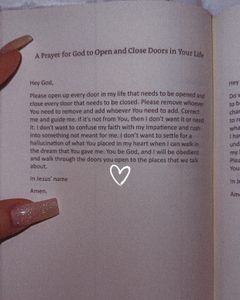 A Prayer for God to Open and Close Doors in Your Life
Hey God,
Please open up every door in my life that needs to be opened and
close every door that needs to be closed. Please remove whoever
You need to remove and add whoever You need to add. Correct
me and guide me. If it's not from You, then I don't want it or need
it. I don't want to confuse my faith with my impatience and rush
into something not meant for me. I don't want to settle for a
hallucination of what You placed in my heart when I can walk in
the dream that You gave me. You be God, and I will be obedient
and walk through the doors you open to the places that we talk
about.
In Jesus' name
Amen.